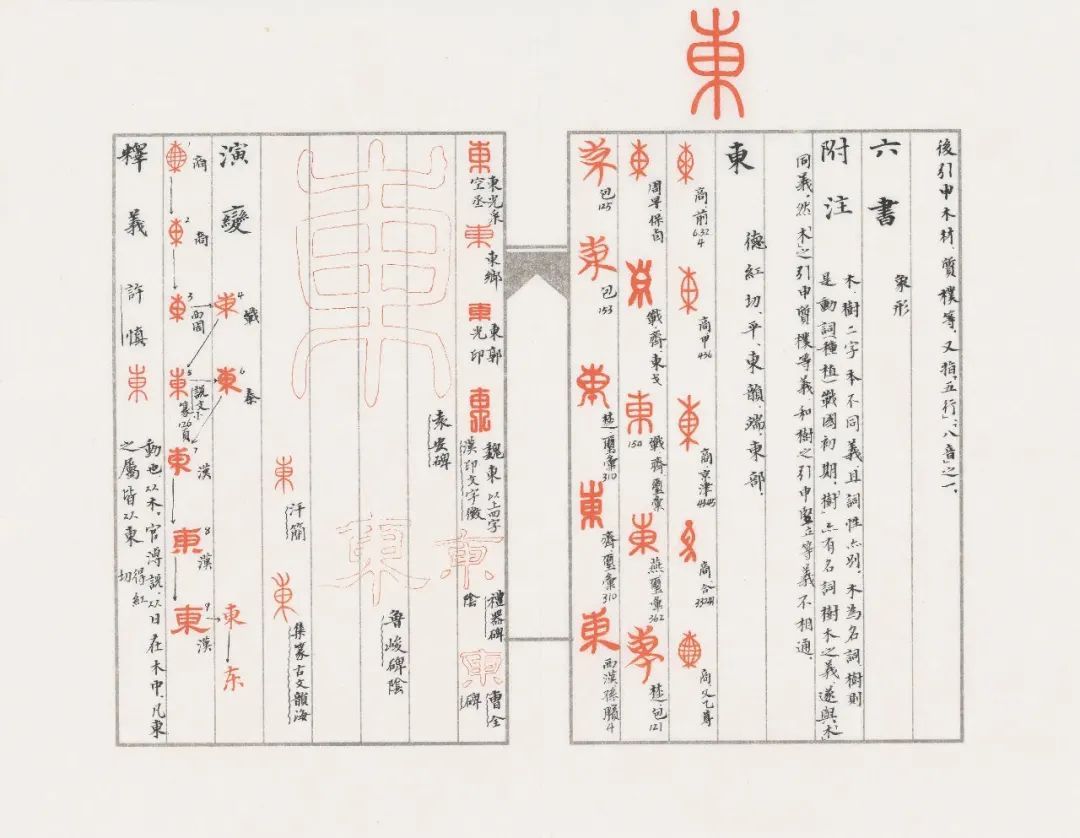 東
後引申木材、質樸等。又指「五行」、「八音」之一。
六書
象形
附注
木樹二字本不同義,且詞性亦别。木為名詞,樹則
是動詞種植。戰國初期,「樹」亦有名詞樹木之義,遂與「木」
同義。然「木」之引申質樸等義和樹之引申豎立等義不相通。
東
德紅切,平,東韻,端。東部。
東 商·前6.32.4
東 商·甲436
東 商·京津4345
商·合33241
商·父乙尊
東 周早·保卣
戰齊·東戈
東 戰齊·璽彙150
東 燕·璽彙362
楚·包121
包125
包153
楚·璽彙310
東 齊·璽彙310
東 西漢·孫臏4
東 東光采空丞
東 東鄉
東 東郭光印
魏東 以上四字漢印文字徵
東 禮器碑陰
東 曹全碑
袁安碑
東 魯峻碑陰
東 汗簡
東 集篆古文韻海
演變
1 商
2 商
3 西周
4 戰
5 説文小篆126頁
6 秦
7 漢
8 漢
9 漢
東
东
釋義
許慎
東
動也。从木。官溥説:从日在木中。凡東
之屬皆从東。
得紅切